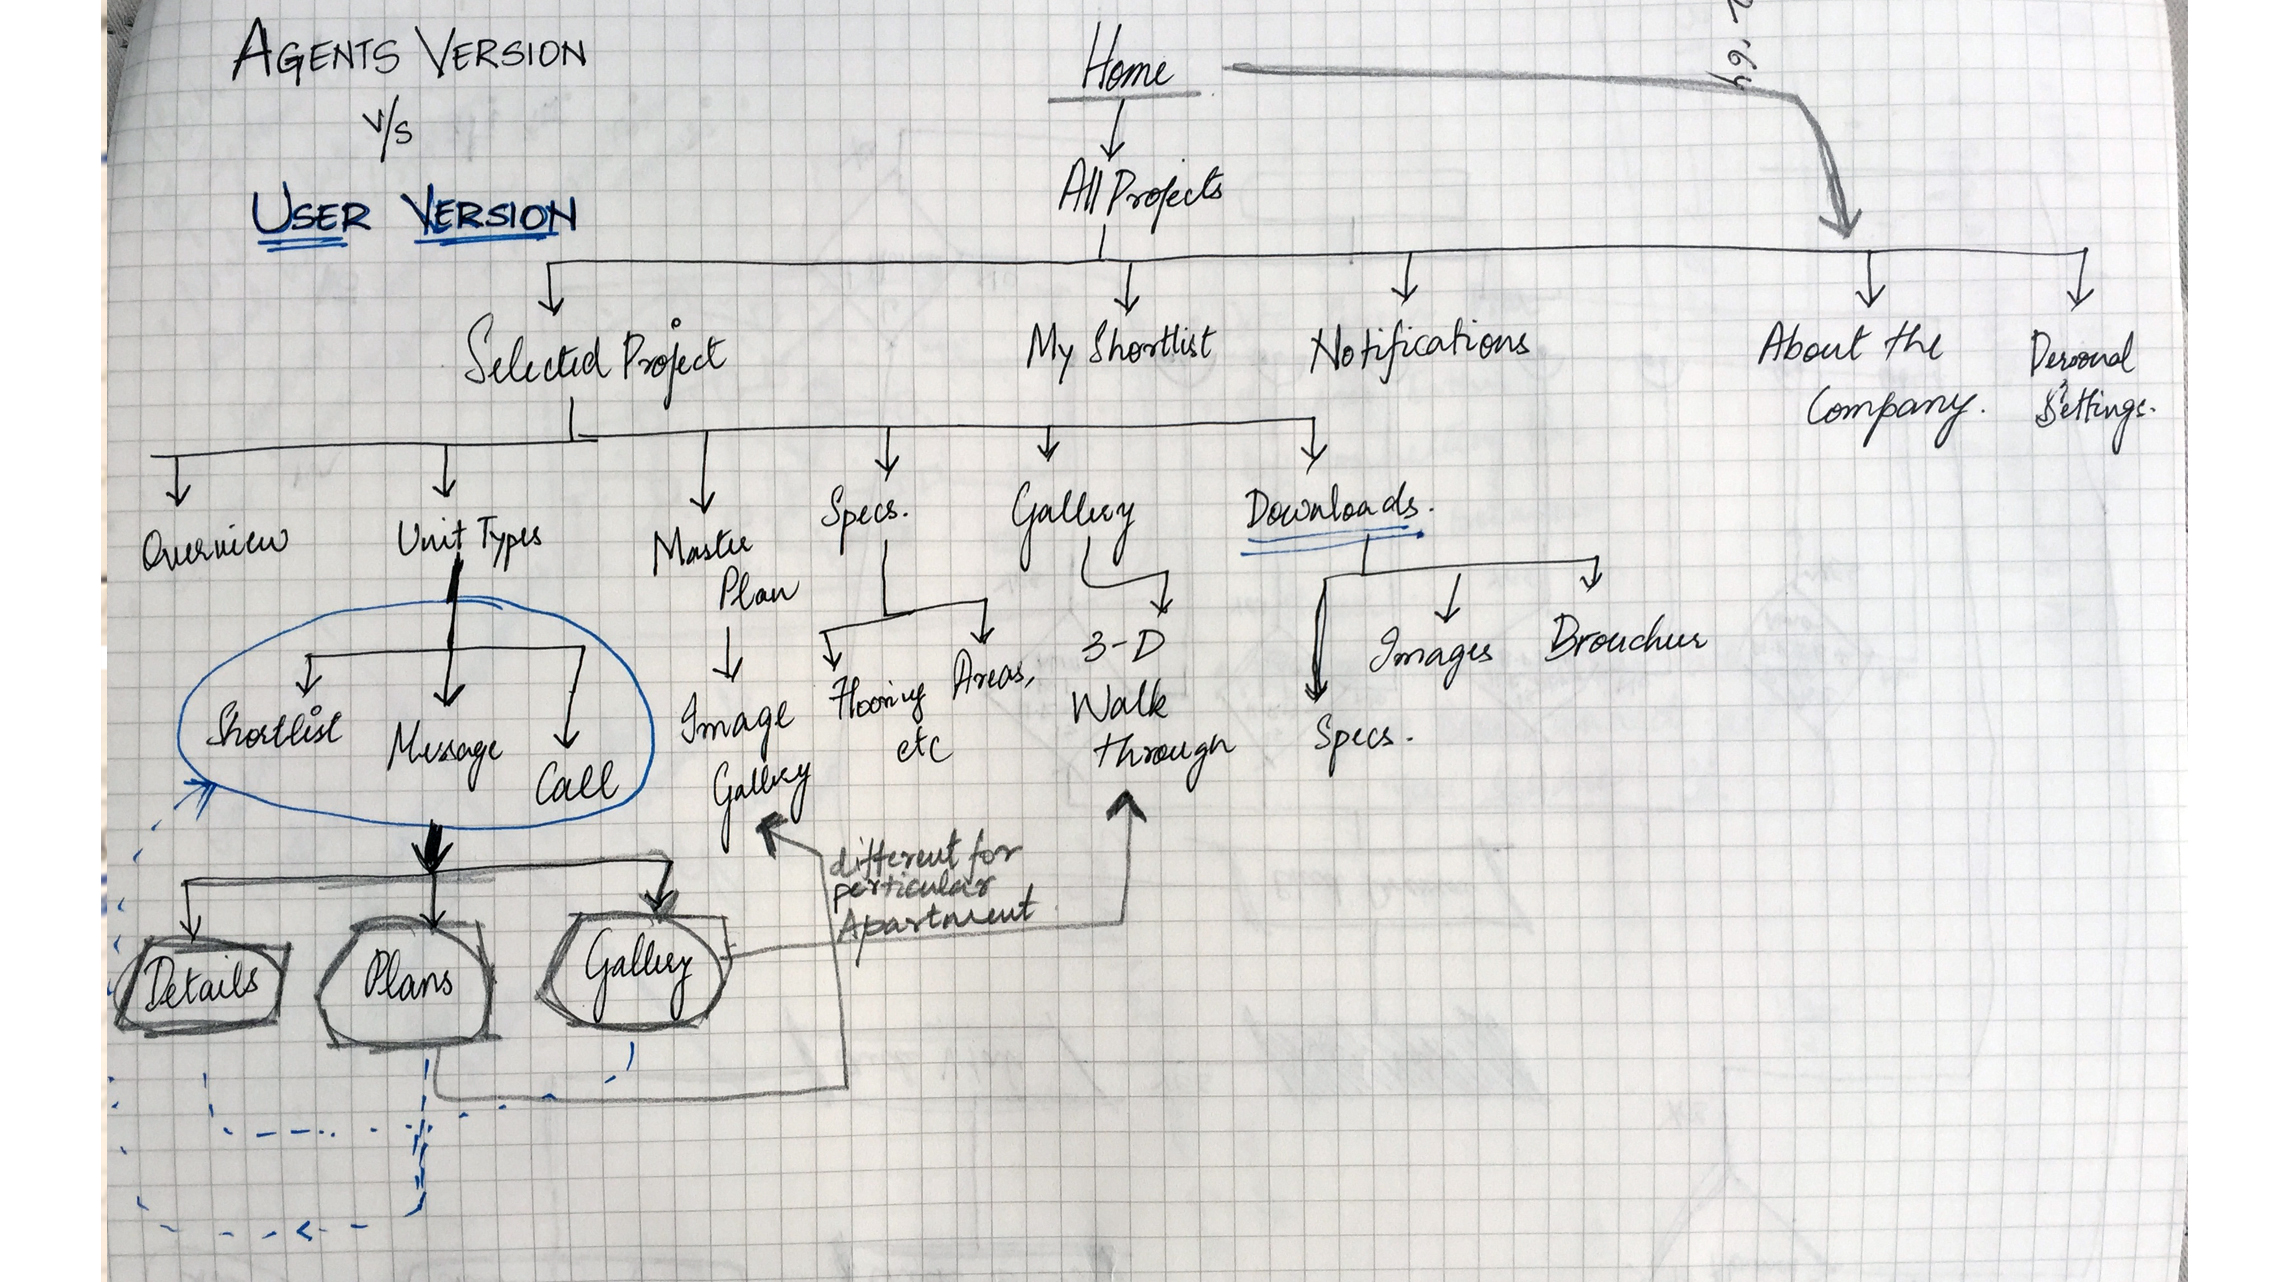 AGENTS VERSION
V/S
USER VERSION
Home
All Projects
Selected Project
My Shortlist
Notifications
About the
Company.
Personal
Settings.
Overview
Unit Types
Master
Plan
Specs.
Gallery
Downloads.
Shortlist
Message
Call
Image
Gallery
Flooring
Areas,
etc
3-D
Walk
through
Specs.
Images
Broucher
different for
particular
Apartment
Details
Plans
Gallery